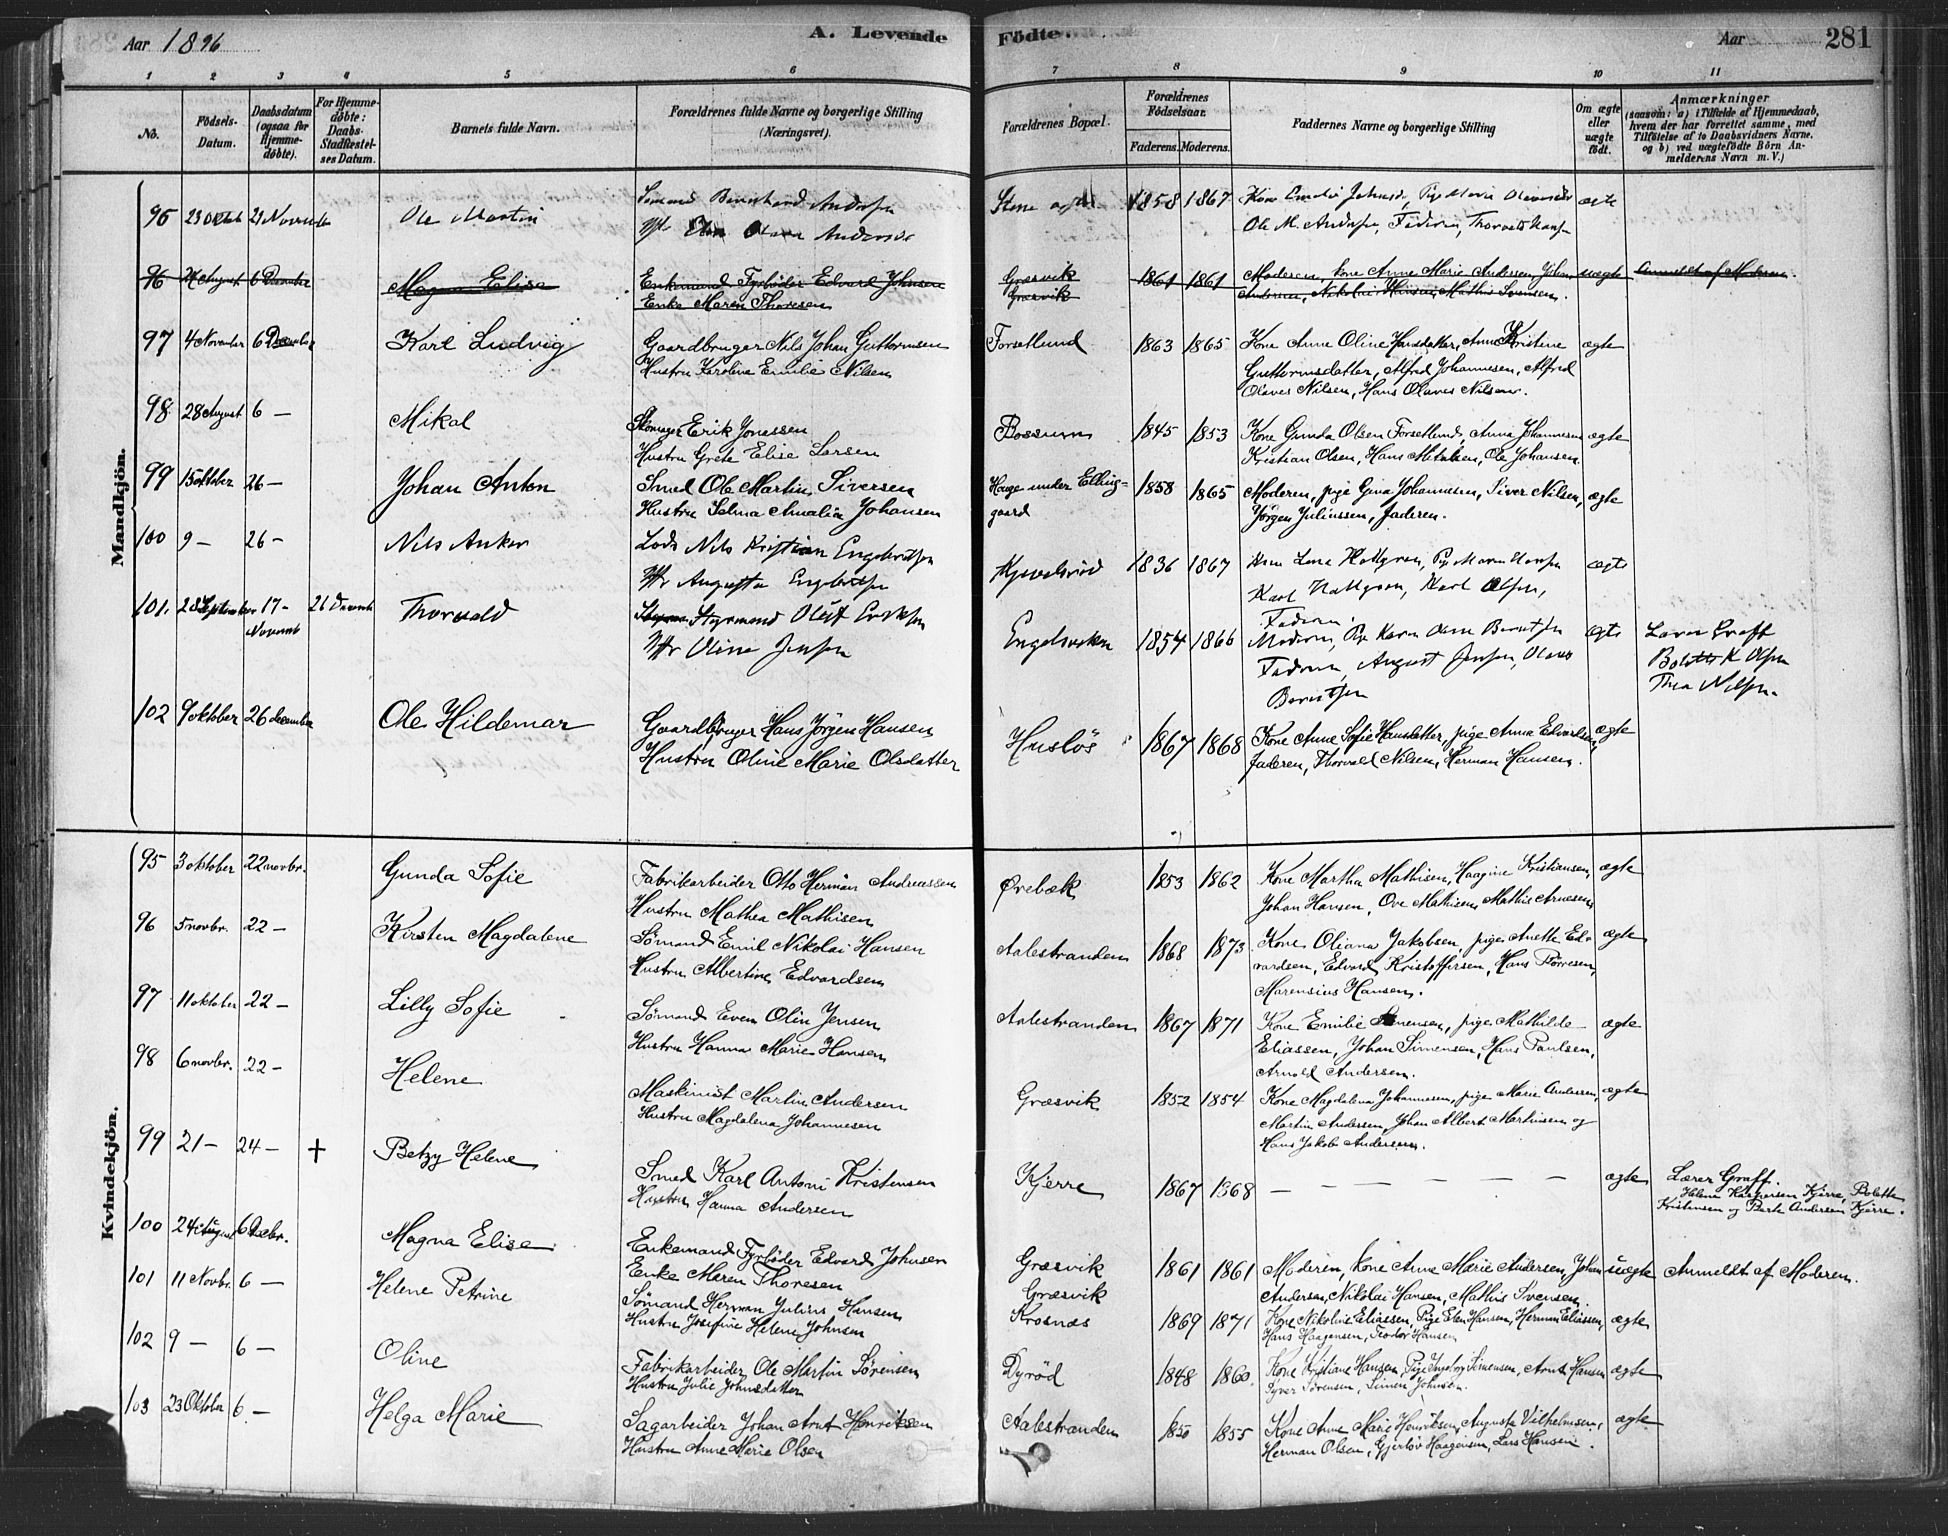 Aar 1896
A. Levende Födte.
Aar 281
1 2 3 4 5 6 7 8 9 10 11
No.
Födsels-Datum.
Daabsdatum (ogsaa for Hjemme-döbte).
For Hjemme-döbte: Daabs-Stadfæstelses Datum.
Barnets fulde Navn.
Forældrenes fulde Navne og borgerlige Stilling (Næringsvei).
Forældrenes Bopæl.
Forældrenes Födselsaar.
Faderens. Moderens.
Faddernes Navne og borgerlige Stilling
Om ægte eller uægte födt.
Anmærkninger
(saasom: a) i Tilfælde af Hjemmedaab, hvem der har forrettet samme, med Tilföielse af to Daabsvidners Navne. og b) ved uægtefödte Börn Anmelderens Navn m. V.)
Mandkjön.
95 23 Oktob 29 Novembr Ole Martin Sömand Andersen 1858 1867 ægte
Ole M. Andersen, Faderen,
96 24 August 6 Decembr Magna Elise Enkemand Fyrböder Edvard Johnsen Græsvik 1861 1861 Moderen, kone Anne Marie Andersen, Johan uægte Anmeldt af Moderen.
Enke Maren Thoresen Græsvik Andersen, Nikolai Hansen, Mathis Svensen.
97 4 November 6 December Karl Ludvig Gaardbruger Nils Johan Guttormsen Forsetlund 1863 1865 Kone Anne Oline Hansdatter, Anne Kristine ægte
Hustru Karoline Emilie Nilsen Guttormsdatter, Alfred Johannesen, Alfred
Olaves Nilsen, Hans Olaves Nilsen.
98 28 August 6 — Mikal Skomager Erik Jonassen Bossum 1845 1853 Kone Gunda Olsen Forsetlund, Anna Johannesen ægte
Hustru Grete Elise Larsen Kristian Olsen, Hans Mikalsen, Ole Johansen
99 15 oktober 26 — Johan Anton Smed Ole Martin Siversen Hauge under Elking- 1858 1865 Moderen, pige Gina Johannesen, Siver Nilsen, ægte
Hustru Selma Amalia Johansen gaard Jörgen Juliussen, Faderen.
100 9 — 26 — Nils Anker Lods Nils Kristian Engebretsen 1836 1867 ægte
Hstr Augusta Engebretsen Karl Karl Olsen,
Faderen.
101. 28 September 17 — November 26 Decemb Thorvald Styrmand Olaf Eriksen Engelsviken 1854 1866 Moderen, ægte Lærer Graff
Hstr Oline Jensen Faderen, August Jensen, Olaves Bolette K Olsen
Berntsen Thea Nilsen.
102 9 oktober 26 december Ole Hildemar Gaardbruger Hans Jörgen Hansen Huslös 1867 1868 Kone Anne Sofie Hansdatter, pige Anna Edvardsen, ægte
Hustru Oline Marie Olsdatter Faderen, Thorvald Nilsen, Herman Hansen.
Kvindekjön.
95 3 oktober 22 novbr. Gunda Sofie Fabrikarbeider Otto Herman Andreassen Ørebæk 1853 1862 Kone Martha Mathisen, Haagine Kristiansen, ægte
Hustru Mathea Mathisen Johan Hansen, Ove Mathisen, Mathis Arnesen
96 5 novbr. 22 — Kirsten Magdalene Sömand Emil Nikolai Hansen Aalestranden 1868 1873 Kone Oliana Jakobsen, pige Anette Ed- ægte
Hustru Albertine Edvardsen vardsen, Edvard Kristoffersen, Hans Pörresen,
Marensius Hansen.
97 11 oktober 22 — Lilly Sofie Sömand Even Olin Jensen Aalestranden 1867 1871 Kone Emilie Simensen, pige Mathilde ægte
Hustru Hanna Marie Hansen Eliassen, Johan Simensen, Hans Paulsen,
Arnold Andersen.
98 6 novbr. 22 — Helene Maskinist Martin Andersen Græsvik 1852 1854 Kone Magdalena Johannesen, pige Marie Andersen, ægte
Hustru Magdalena Johannesen Martin Andersen, Johan Albert Martinsen og
Hans Jakob Andersen.
99 21 — 24 — + Betzy Helene Smed Karl Antoni Kristensen Kjerre 1867 1868 — — — — — — ægte Lærer Graff.
Hustru Hanna Andersen Helene Kaspersen Kjerre, Bolette
Kristensen og Berte Andersen Kjerre.
100 24 August 6 Decbr. Magna Elise Enkemand Fyrböder Edvard Johnsen Græsvik 1861 1861 Moderen, kone Anne Marie Andersen, Johan uægte Anmeldt af Moderen.
Enke Maren Thoresen Græsvik Andersen, Nikolai Hansen, Mathis Svensen
101 11 Novbr. 6 — Helene Petrine Sömand Herman Julius Hansen Krosnæs 1869 1871 Kone Nikoline Eliassen, Pige Elen Hansen, Herman Eliassen, ægte
Hustru Josefine Helene Johnsen Hans Haagensen, Teodor Hansen
102 9 — 6 — Oline Fabrikarbeider Ole Martin Sörensen Dyröd 1848 1860. Kone Kristiane Hansen, Pige Ingeborg Simensen, Arnt Hansen ægte
Hustru Julie Johnsdatter Syver Sörensen, Simen Johnsen.
103 23 Oktober 6. — Helga Marie Sagarbeider Johan Arnt Henriksen Aalestranden 1850 1855 Kone Anne Marie Henriksen, Augusta Vilhelmsen, ægte
Hustru Anne Marie Olsen Herman Olsen, Gjerlöv Haagensen, Lars Hansen.